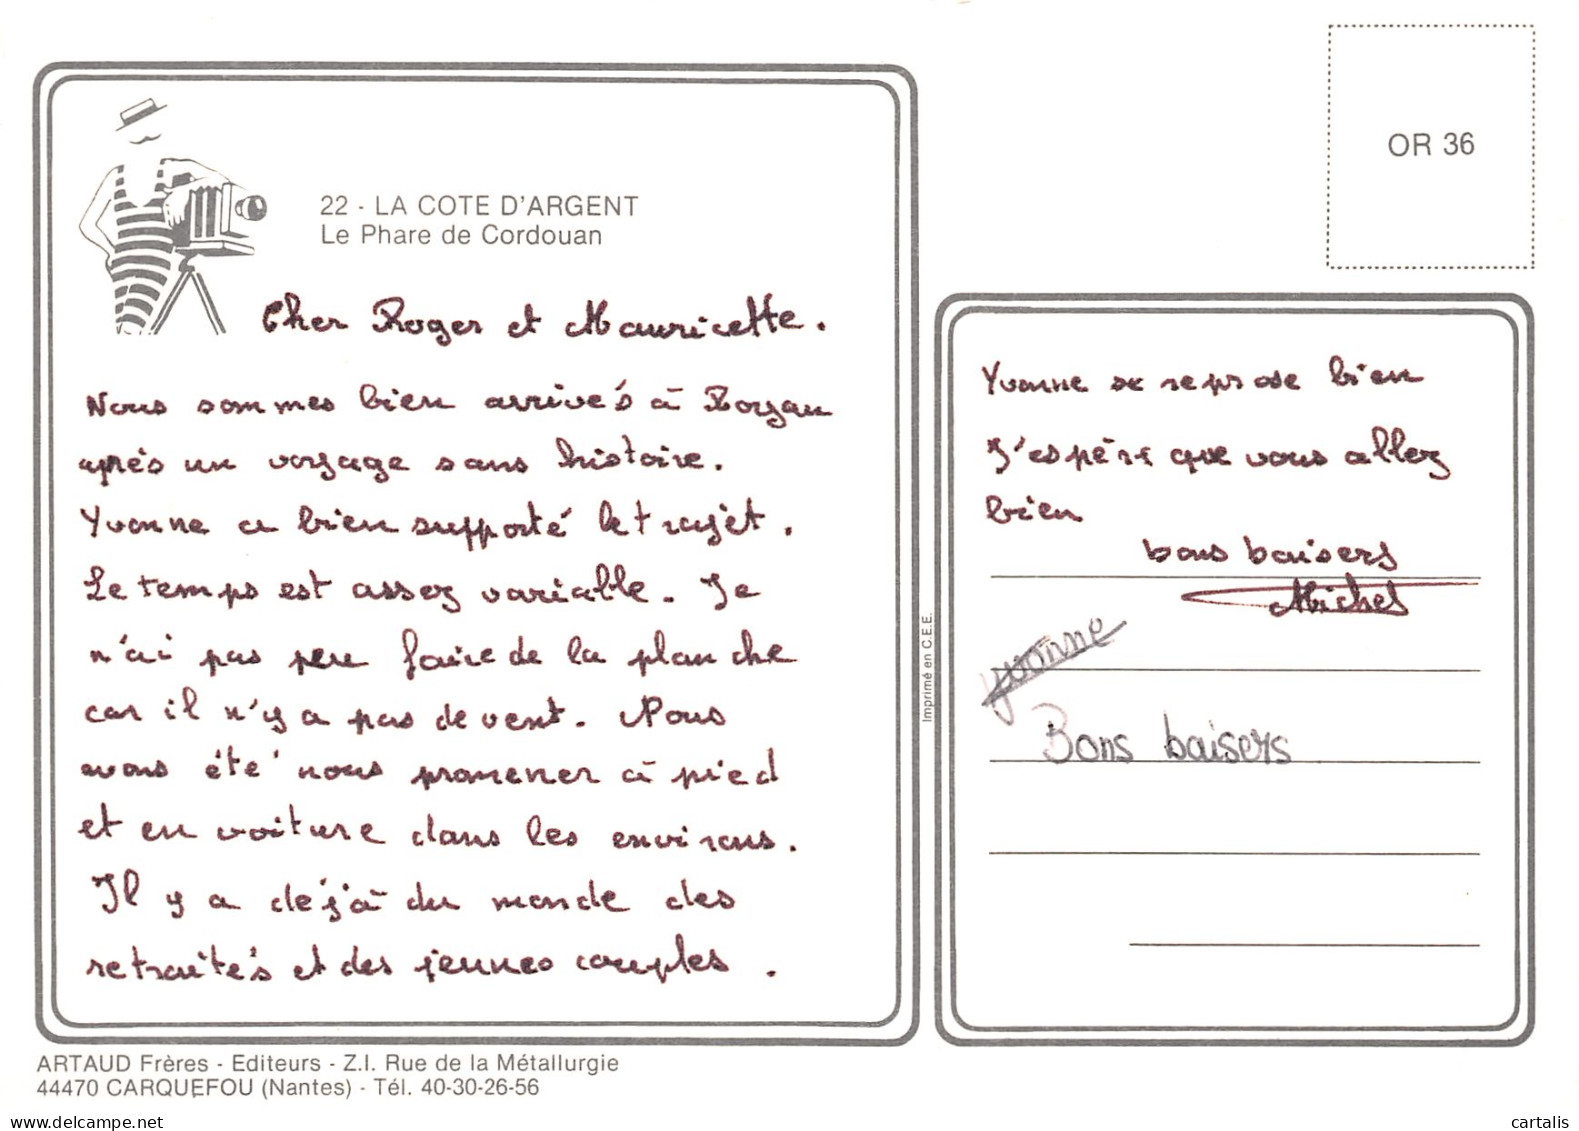 22 - LA COTE D'ARGENT
Le Phare de Cordouan
OR 36
Cher Roger et Mauricette.
Nous sommes bien arrivés à Royan
après un voyage sans histoire.
Yvonne a bien supporté le trajet.
Le temps est assez variable. Je
n'ai pas peu faire de la planche
car il n'y a pas de vent. Nous
avons été nous promener à pied
et en voiture dans les environs.
Il y a déjà du monde des
retraités et des jeunes couples.
Yvonne se repose bien
J'espère que vous allez
bien
bons baisers
Michel
Yvonne
Bons baisers
Imprimé en C.E.E.
ARTAUD Frères - Editeurs - Z.I. Rue de la Métallurgie
44470 CARQUEFOU (Nantes) - Tél. 40-30-26-56
www.delcampe.net
cartalis